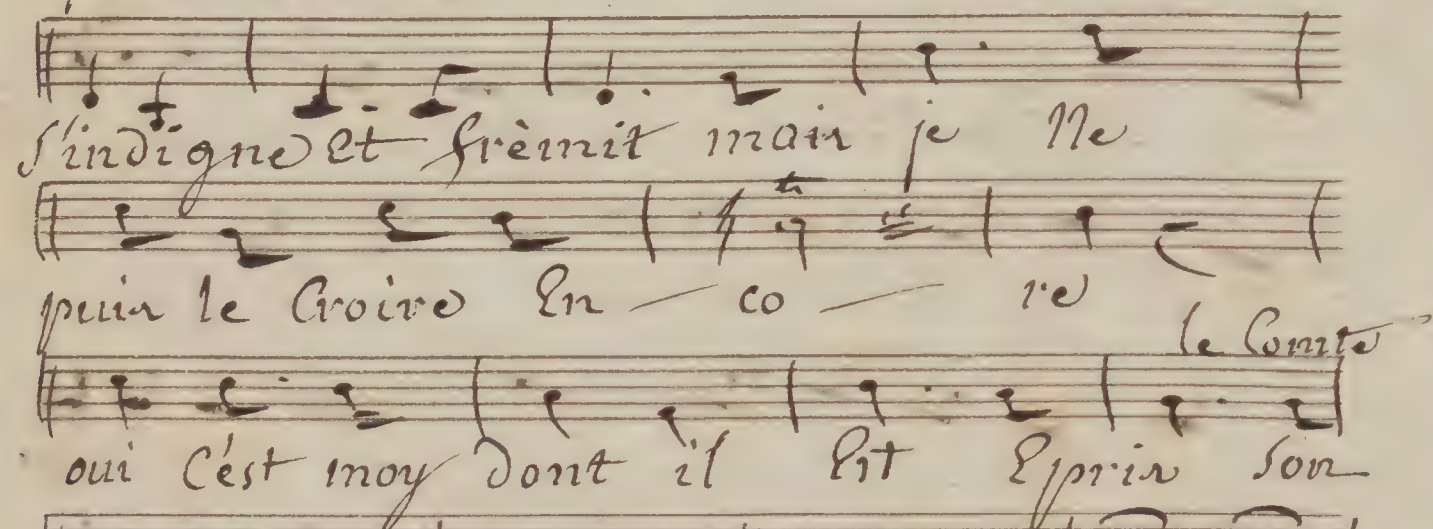 s'indigne et frèmit mais je Ne
puis le Croire En — co — re
le Comte
oui C'est moy dont il Est Epris son